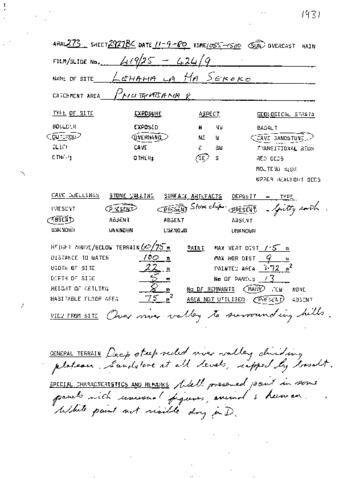 1931
ARAL 273 SHEET 2927BC DATE 11-9-80 TIME 1055-1500 SUN OVERCAST RAIN
FILM/SLIDE No. 419/25 - 424/9
NAME OF SITE LEHAHA LA HA SEKOKO
CATCHMENT AREA
TYPE OF SITE EXPOSURE ASPECT GEOLOGICAL STRATA
BOULDER EXPOSED N NW BASALT
OUTCROP OVERHANG NE W CAVE SANDSTONE
CLIFF CAVE E SW TRANSITIONAL BEDS
OTHER: OTHER: SE S RED BEDS
MOLTENO BEDS
UPPER BEAUFORT BEDS
CAVE DWELLINGS STONE WALLING SURFACE ARTEFACTS DEPOSIT - TYPE
PRESENT PRESENT PRESENT Stone chips PRESENT - gritty earth.
ABSENT ABSENT ABSENT ABSENT
UNKNOWN UNKNOWN UNKNOWN UNKNOWN
HEIGHT ABOVE/BELOW TERRAIN 60/75 m PAINT MAX VERT DIST 1·5 m
DISTANCE TO WATER 100 m MAX HOR DIST 9 m
WIDTH OF SITE 22 m PAINTED AREA 7.72 m²
DEPTH OF SITE 5 m No OF PANELS 13
HEIGHT OF CEILING 8 m No OF REMNANTS MANY FEW NONE
HABITABLE FLOOR AREA 75 m² AREA NOT UTILISED PRESENT ABSENT
VIEW FROM SITE Over river valley to surrounding hills.
GENERAL TERRAIN Deep steep sided river valley dividing
plateau. Sandstone at all levels, capped by basalt.
SPECIAL CHARACTERISTICS AND REMARKS Well preserved paint in some
panels with unusual figures, animal & human.
White paint not visible dry in D.